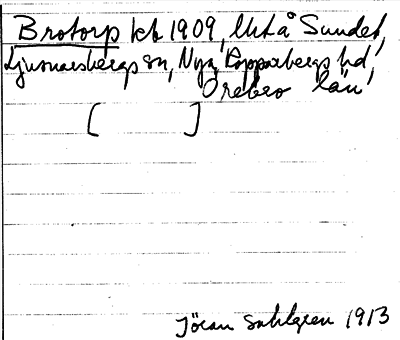 Brotorp kt 1909, Utså Sundet,
Ljusnarsbergs sn, Nya Kopparbergs hd,
Örebro län
[ ]
Jöran Sahlgren 1913